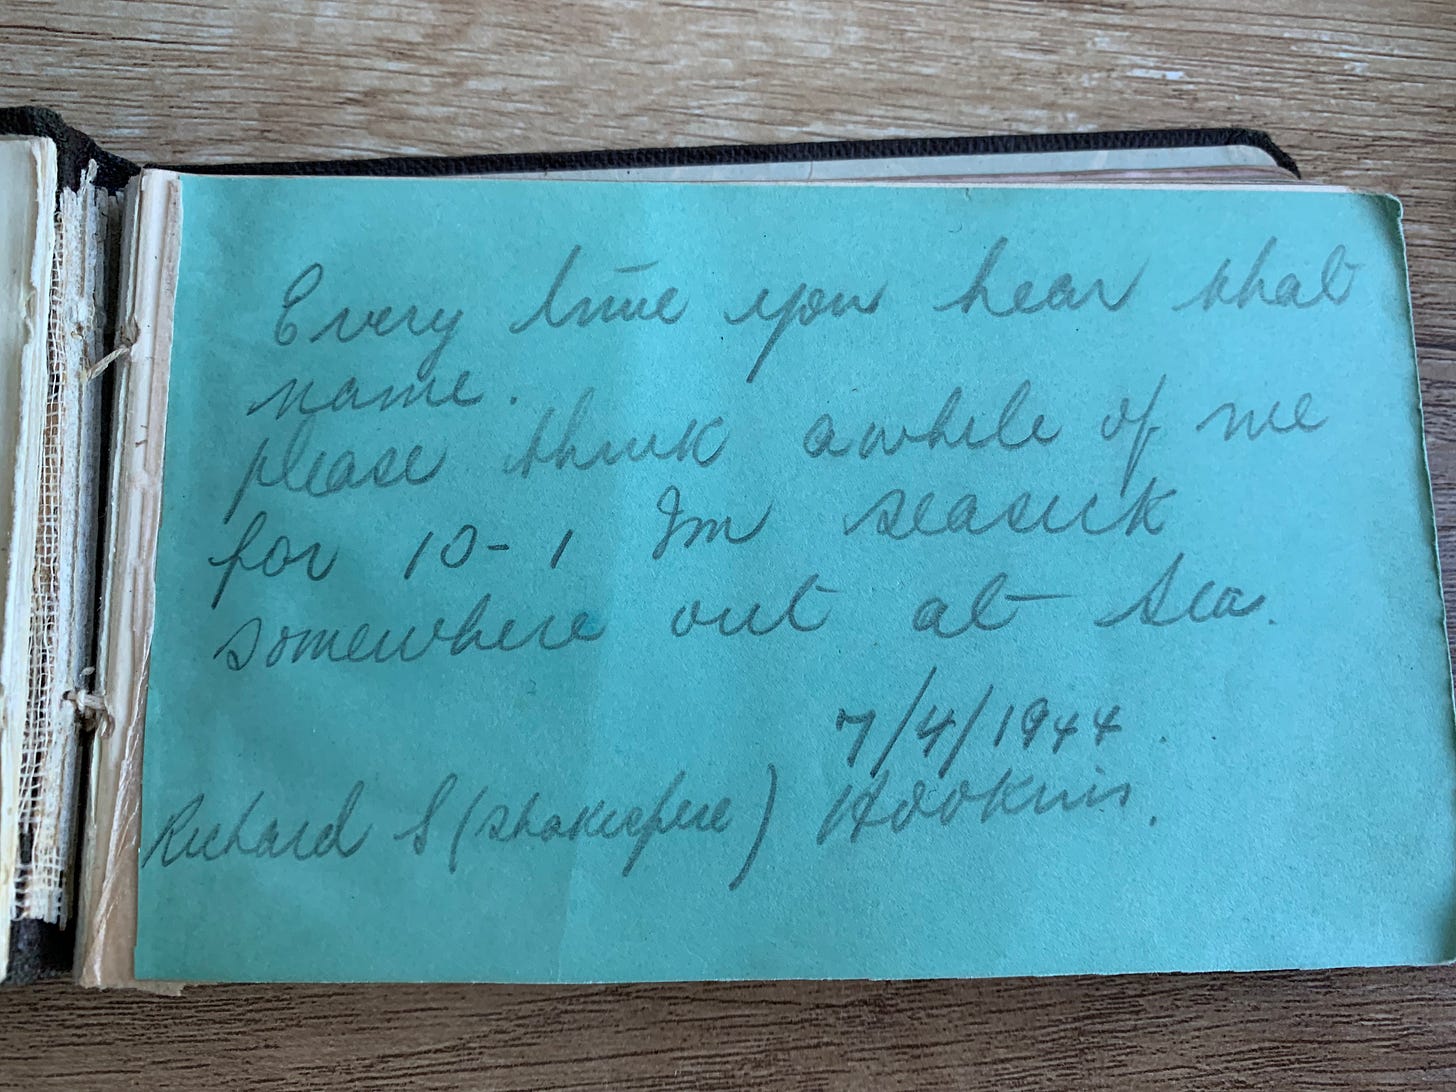 Every time you hear that
name.
please think awhile of me
for 10-1 Im seasick
somewhere out at Sea.
7/4/1944.
Richard S (Shakespere) Hookins.